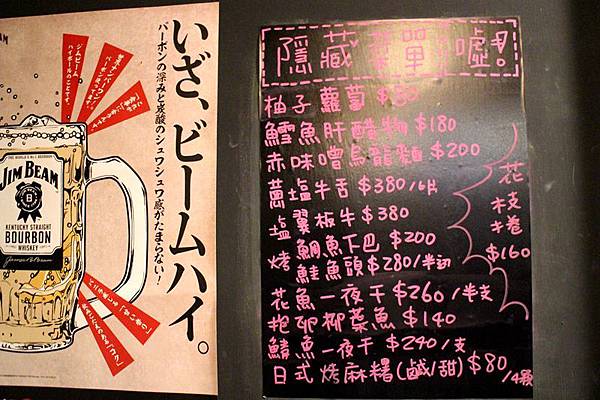 いざ、ビームハイ。
バーボンの深みと炭酸のシュワシュワ感がたまらない!
ジムビーム
ハイボールのことです。
JIM BEAM
KENTUCKY STRAIGHT
BOURBON
WHISKEY
隱藏菜單,噓!
柚子蘿蔔 $80
鱈魚肝醋物 $180
赤味噌烏龍麵 $200
蔥塩牛舌 $380/6片
塩翼板牛 $380
烤鯛魚下巴 $200
鮭魚頭 $280/半切
花魚一夜干 $260/半支
抱卵柳葉魚 $140
鯖魚一夜干 $240/支
日式烤麻糬(鹹/甜) $80/4顆
花枝卷 $160